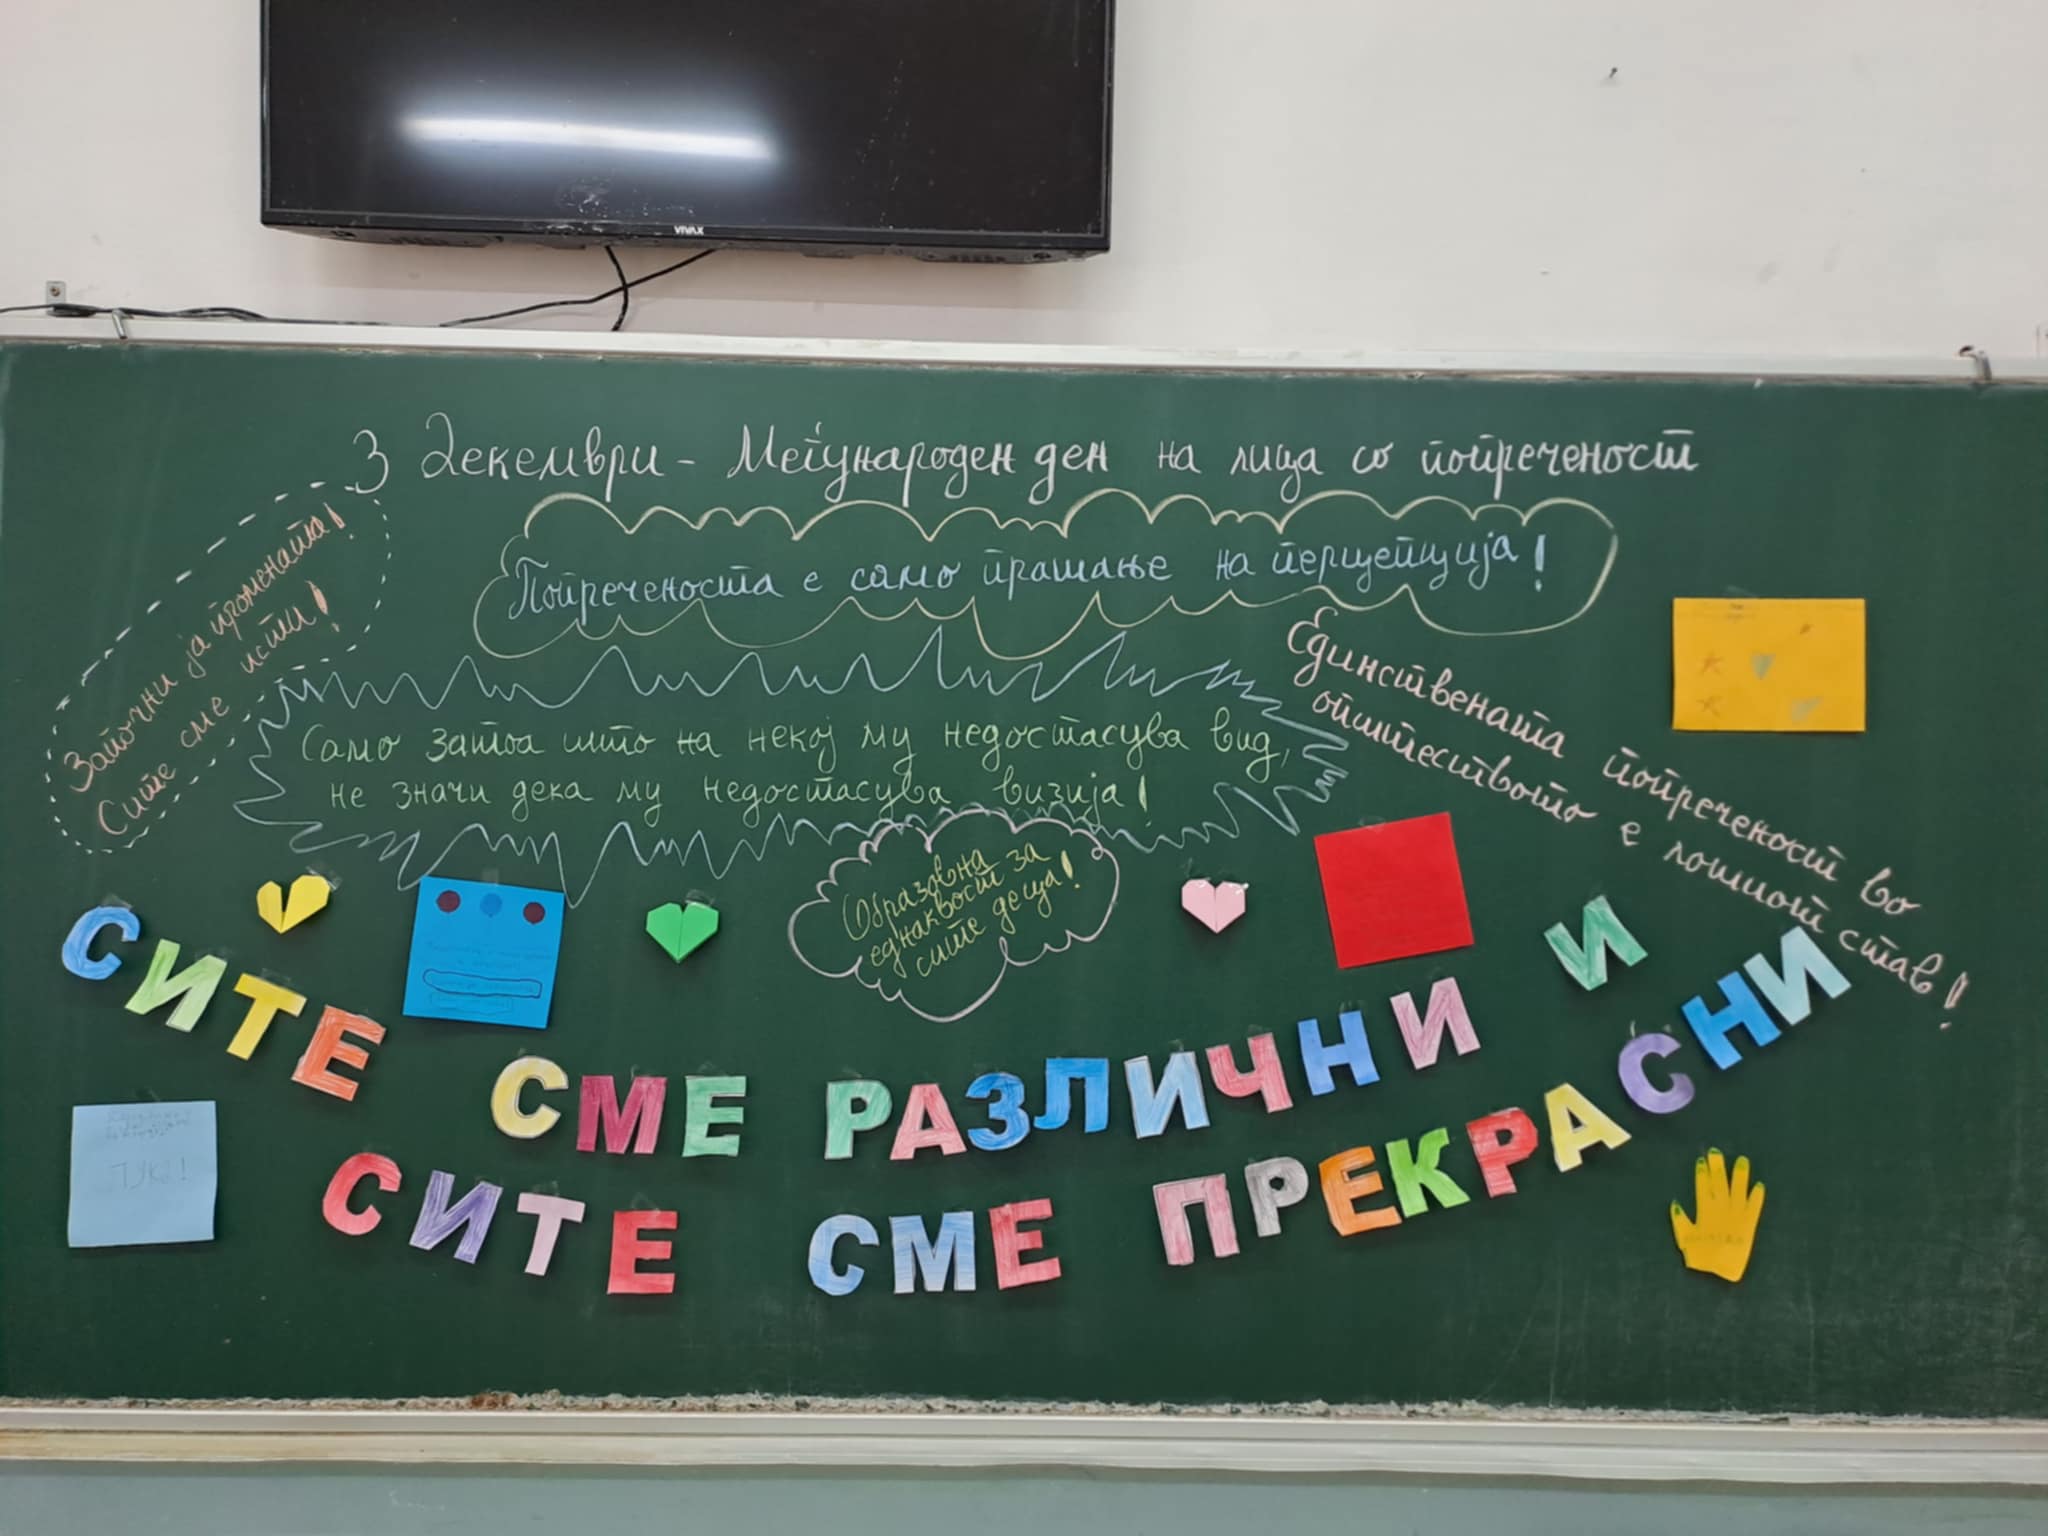 VIVAX
3 Декември - Меѓународен ден на лица со попреченост
Попреченоста е само прашање на перцепција!
Започни ја промената!
Сите сме исти!
Само затоа што на некој му недостасува вид,
не значи дека му недостасува визија!
Единствената попреченост во
општеството е лошиот став!
Образовна
еднаквост за
сите деца!
СИТЕ СМЕ РАЗЛИЧНИ И
СИТЕ СМЕ ПРЕКРАСНИ